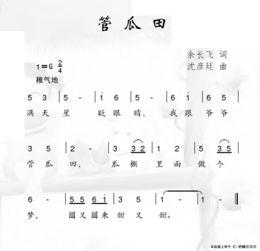 管瓜田
1=G 2/4
余长飞 词
沈彦廷 曲
稚气地
5 3 | 5 - | i 6 | 5 - | 6 i | 6 5 |
满天星 眨眼睛, 我跟爷爷
3 5 | 2 - | 3 32 | 1 - | 5 35 | 1 2 |
管瓜田, 瓜棚里面做个
6 - | 55 6i | 3 5 | 1 - | 1 - ‖
梦, 圆又圆来甜又甜。